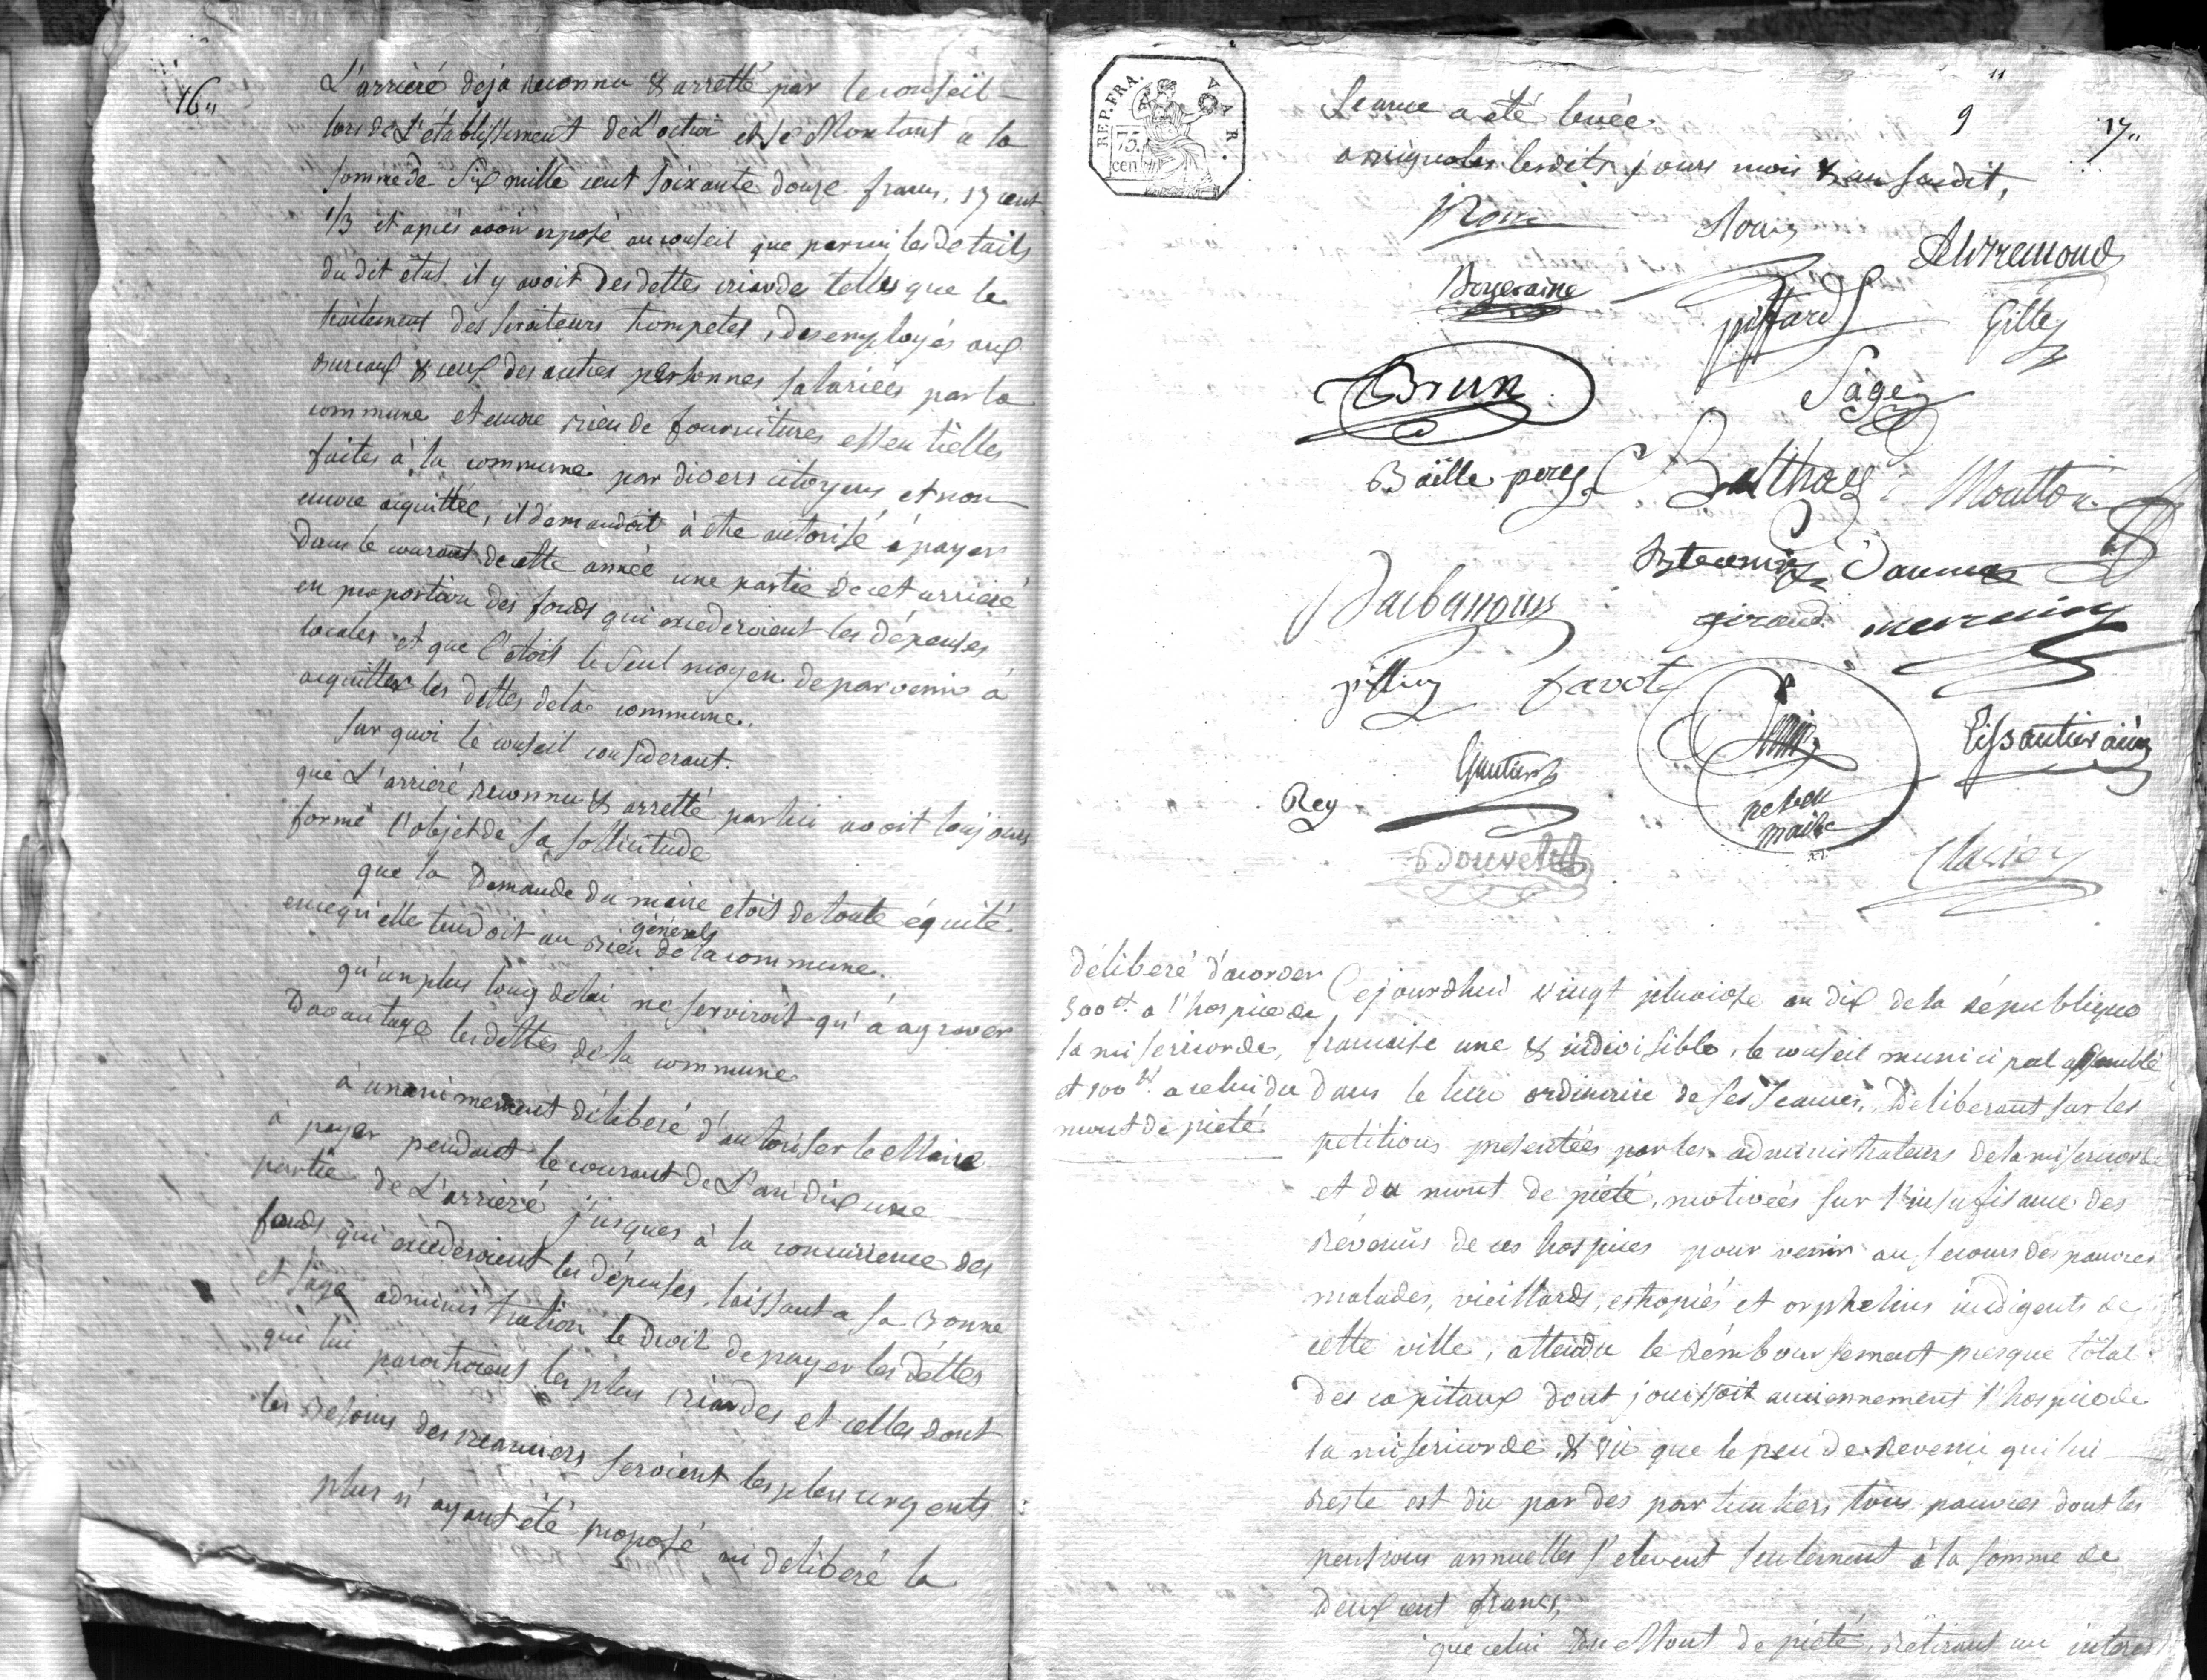 16"
L'arrieré deja reconnu & arretté par le conseil
lors de L'établissement de L'octroi et se Montant a la
somme de Six mille cent soixante douze francs, 17 cent.
1/3 et après avoir exposé au conseil que parmi les details
du dit état il y avoit des dettes criardes telles que le
traitement des serviteurs trompetes, des employés aux
bureaux & ceux des autres personnes salariées par la
commune et encore bien de fournitures essentielles
faites à la commune par divers citoyens et non
encore aiquittée, il demandoit à etre autorisé à payer
dans le courant de cette année une partie de cet arrieré
en proportion des fonds qui excederoient les dépenses
locales et que c'etoit le seul moyen de parvenir à
aiquitter les dettes de la commune.
sur quoi le conseil considerant.
que L'arrieré reconnu & arretté par lui avoit toujours
formé l'objet de sa sollicitude
que la Demande du maire etoit de toute équité
en ce qu'elle tendoit au bien générals de la commune.
qu'un plus long delai ne serviroit qu'à agraver
Davantage les dettes de la commune
à unanimement délibéré d'autoriser le Maire
à payer pendant le courant de L'an dix une
partie de L'arrieré jusques à la concurrence des
fonds qui excederoient les dépenses, laissant a sa bonne
et sage administration le droit de payer les dettes
qui lui paroitroient les plus criardes et celles dont
les besoins des creanciers seroient les plus urgents
plus n'ayant été proposé ni deliberé la
REP. FRA.
75.
cen.
9
17"
Seance a été levée.
a lesdits jours mois & an susdit,
Audremond
piffard
Gilles
Brun
Sage
Baille
Balthazar
Moutton
Daumas
Barbarroux
giraud
favot
Gautier
Rey
maire
Lissautier ainé
Bouvet
Clavier
délibéré d'acorder
300ᶜᵗ a l'hospice de
la misericorde,
et 100ᶜᵗ a celui du
mont de piété
Cejourdhui vingt pluviose an dix de la république
francaise une & indivisible, le conseil municipal assemblé
Dans le lieu ordinaire de ses seances, Délibérant sur les
petitions presentées par les administrateurs de la misericorde
et du mont de piété, motivées sur l'insufisance des
révenus de ces hospices pour venir au secours des pauvres
malades, vieillards, estropiés et orphelins indigents de
cette ville, attendu le rémboursement presque total
des capitaux dont jouissoit anciennement l'hospice de
la misericorde & vû que le peu de revenu qui lui
reste est dû par des particuliers tous pauvres dont les
pensions annuelles s'elevent seulement à la somme de
deux cent francs,
que celui Du Mont de piété, rétirant un interet